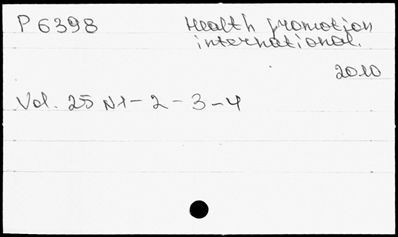 P 6398
Health promotion
international.
2010
Vol. 25 N1-2-3-4